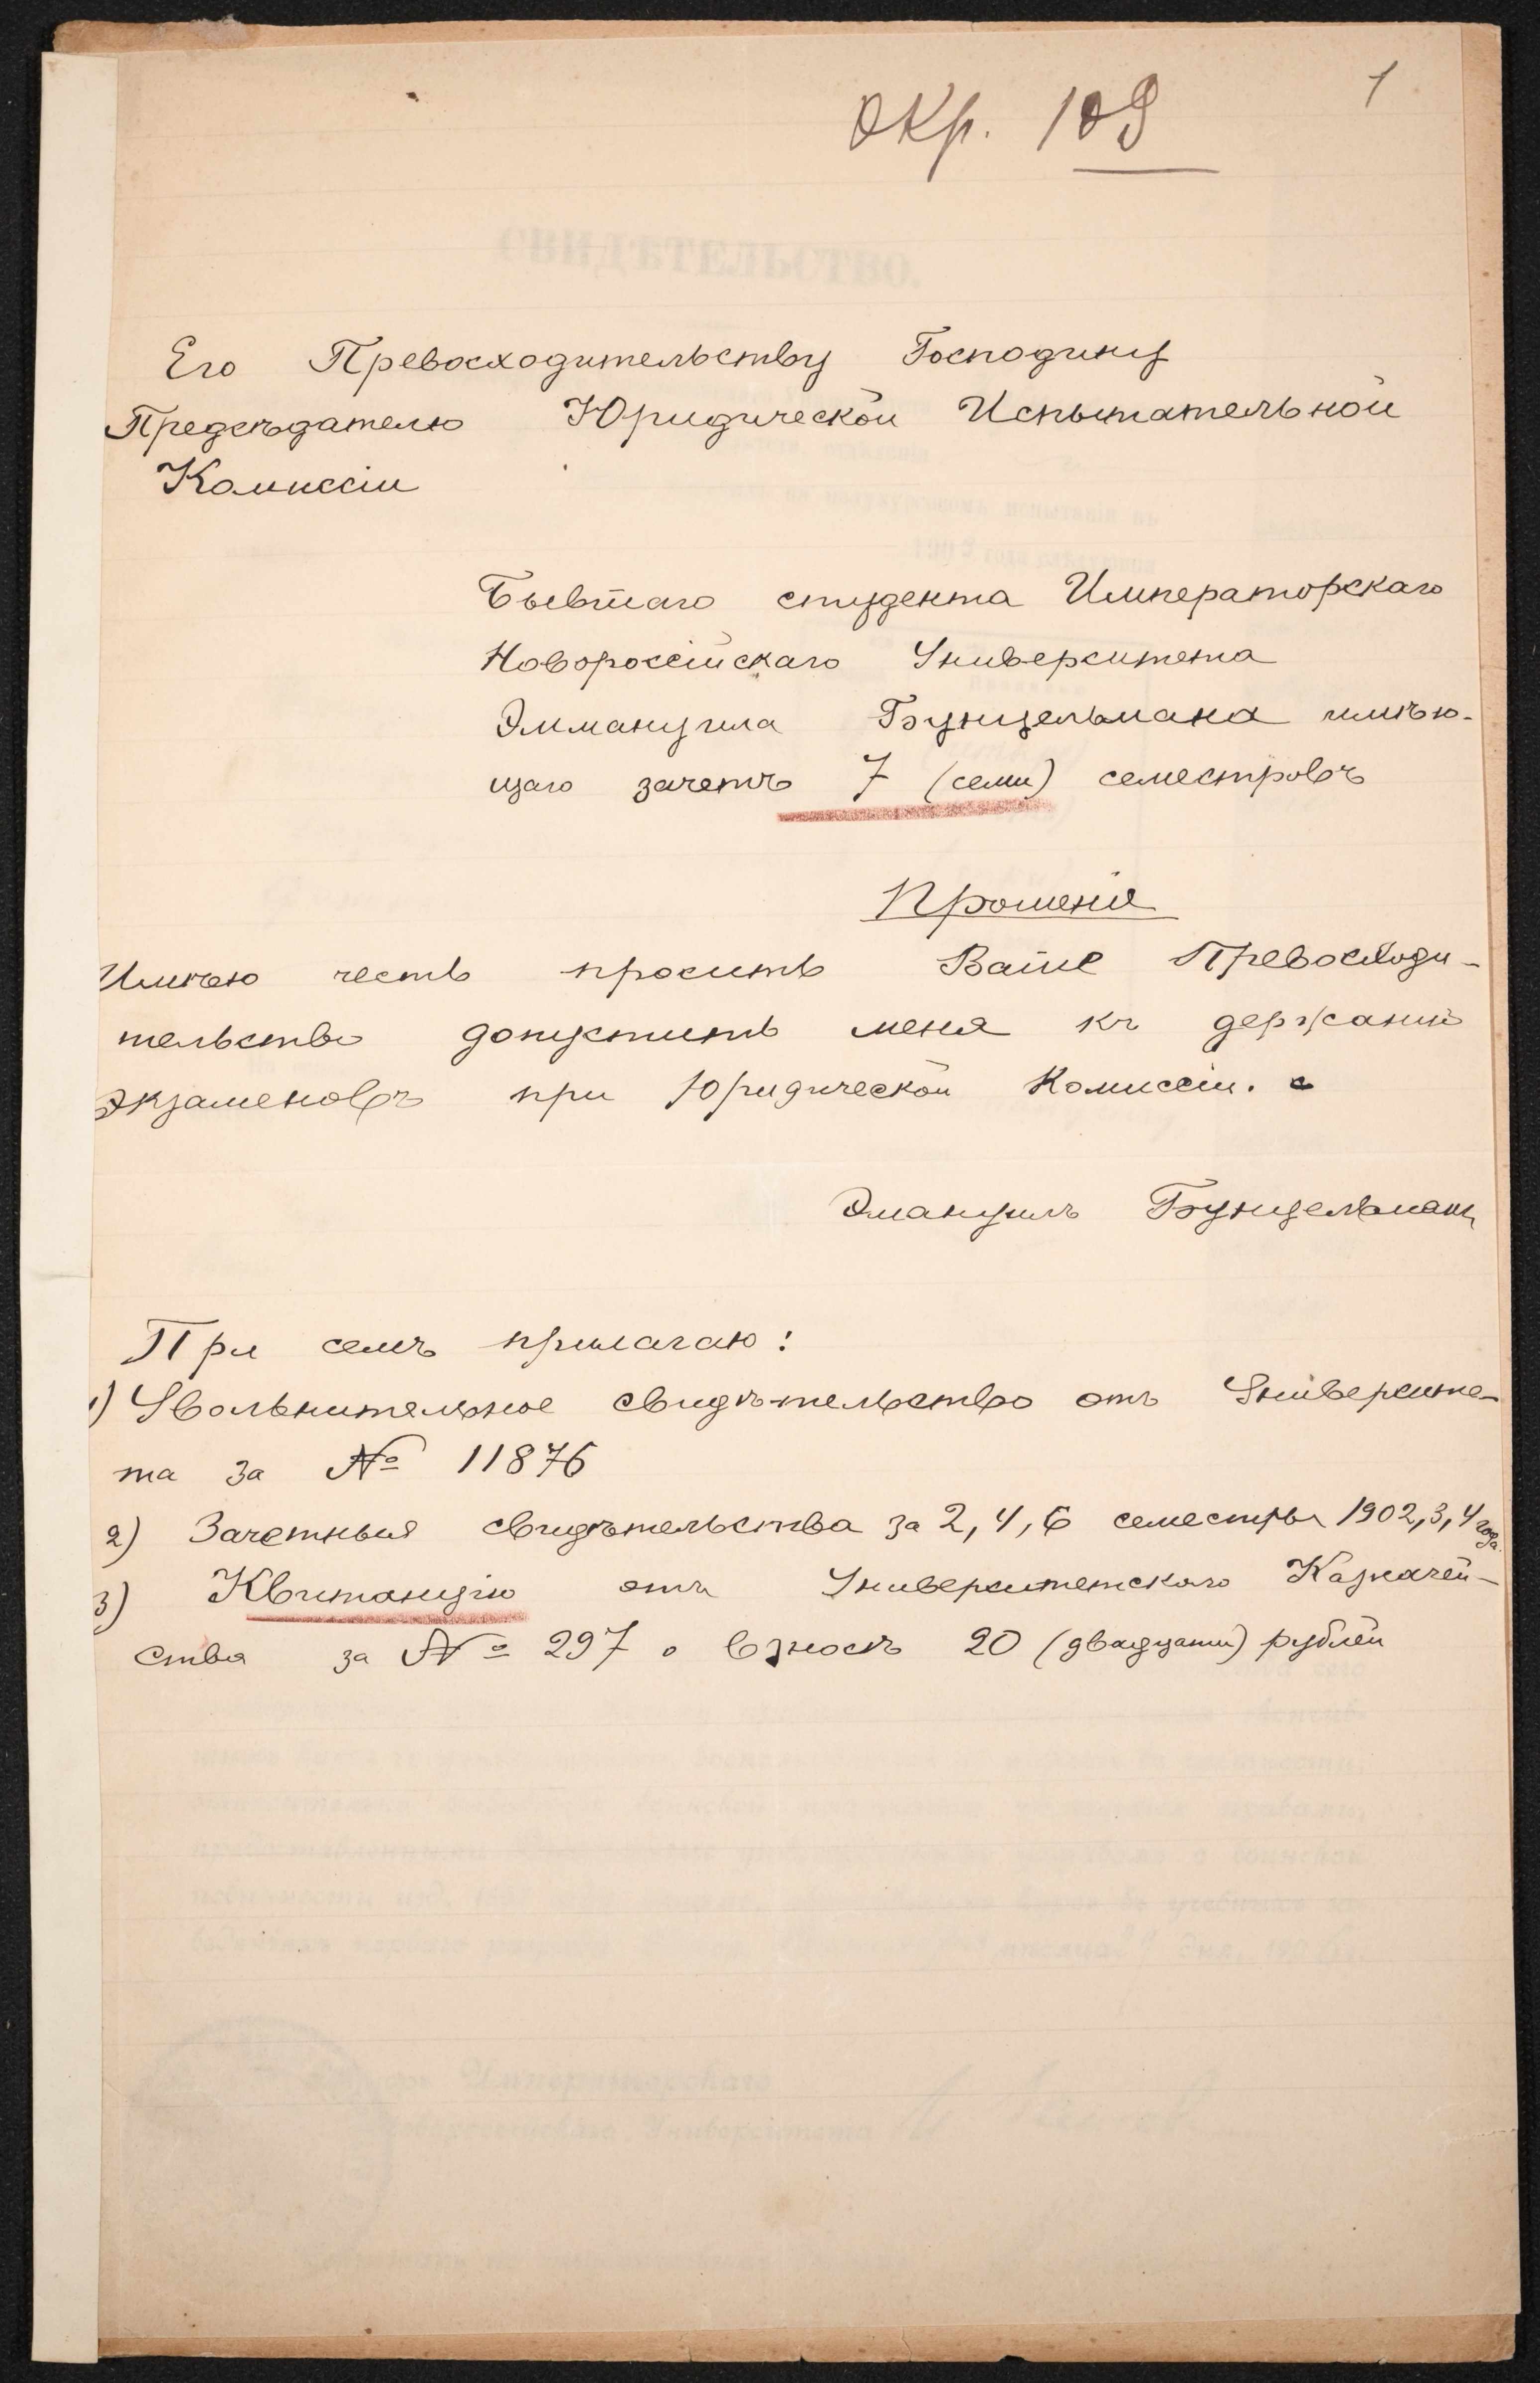 Окр. 109
1
Его Превосходительству Господину
Предсѣдателю Юридической Испытательной
Комиссіи
Бывшаго студента Императорскаго
Новороссійскаго Университета
Эммануила Бунцельмана имѣю-
щаго зачетъ 7 (семи) семестровъ
Прошеніе
Имѣю честь просить Ваше Превосходи-
тельство допустить меня къ держанию
экзаменовъ при Юридической Комиссіи.
Эмануилъ Бунцельманъ
При семъ прилагаю:
1) Увольнительное свидѣтельство отъ Университе-
та за № 11876
2) Зачетныя свидѣтельства за 2, 4, 6 семестры 1902, 3, 4 года.
3) Квитанцію отъ Университетскаго Казначей-
ства за № 297 о взносѣ 20 (двадцати) рублей